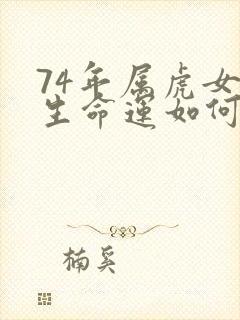 74年属虎女
生命运如何
楠奚